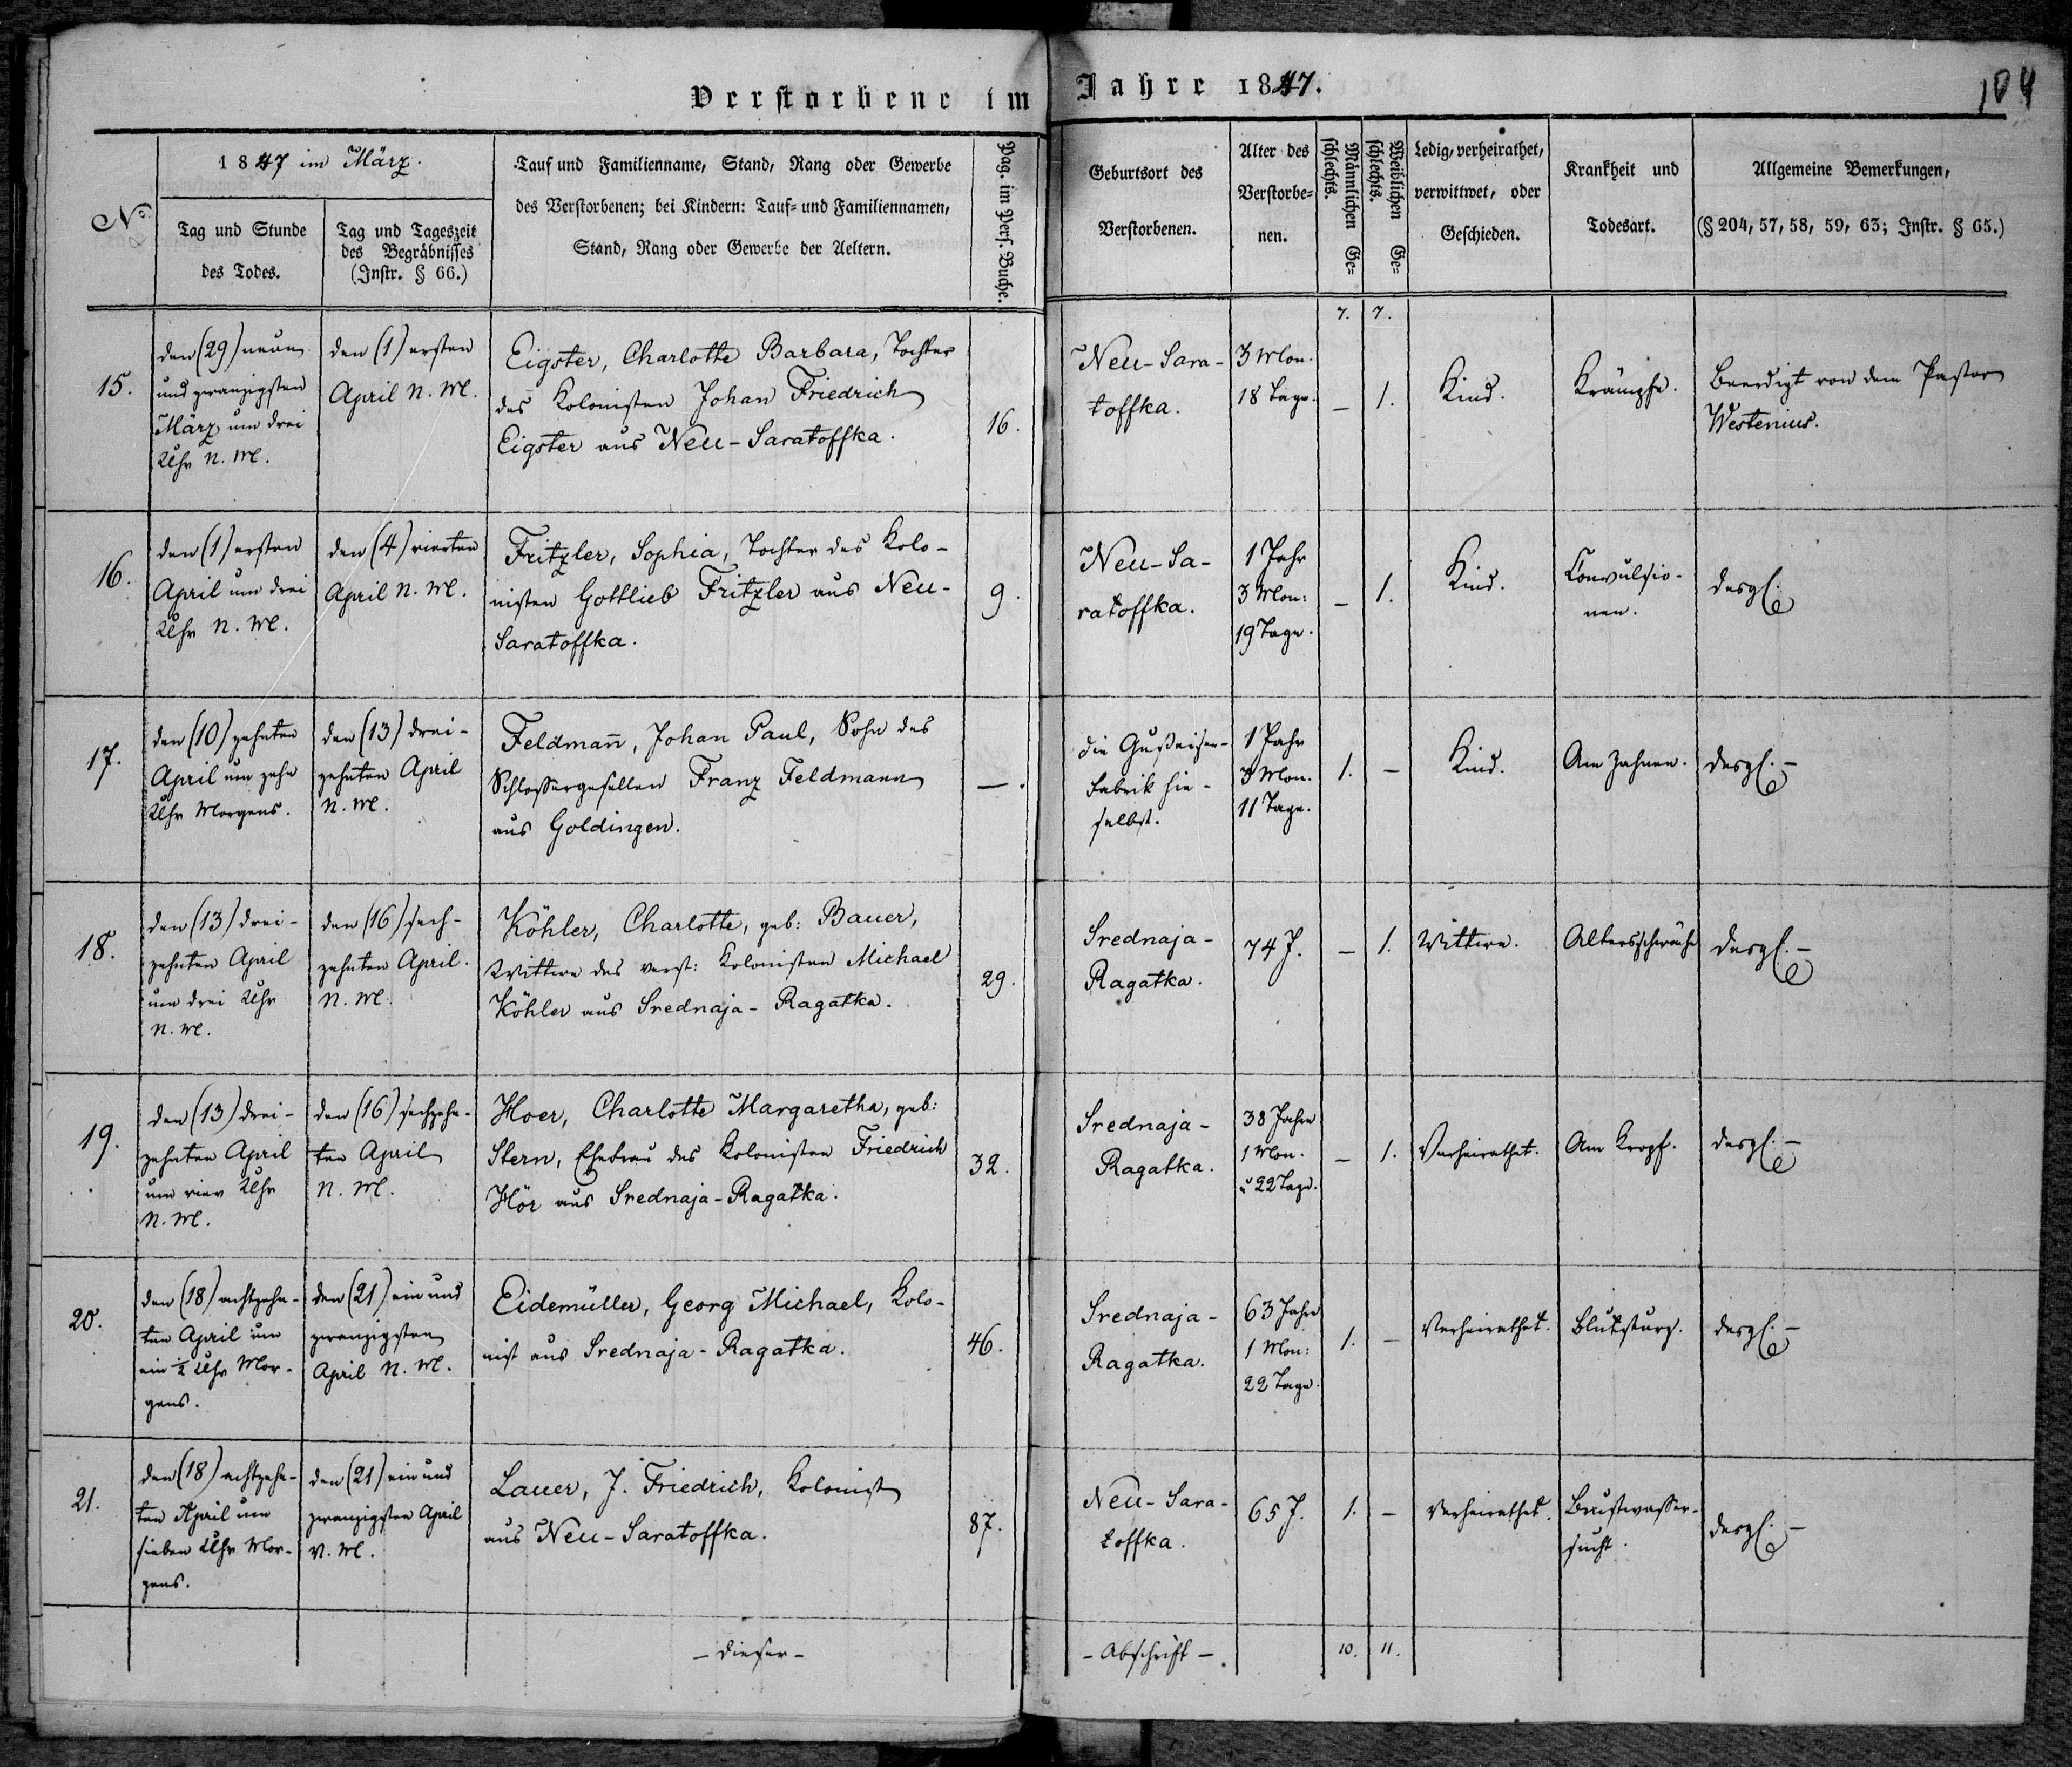 Verstorbene im Jahre 1847.
104
No.
1847 im März.
Tag und Stunde
des Todes.
Tag und Tageszeit
des Begräbnisses
(Instr. § 66.)
Tauf und Familienname, Stand, Rang oder Gewerbe
des Verstorbenen; bei Kindern: Tauf- und Familiennamen,
Stand, Rang oder Gewerbe der Aeltern.
Pag. im Pers. Buche.
Geburtsort des
Verstorbenen.
Alter des
Verstorbe-
nen.
Männlichen Ge-
schlechts.
Weiblichen Ge-
schlechts.
Ledig, verheirathet,
verwittwet, oder
Geschieden.
Krankheit und
Todesart.
Allgemeine Bemerkungen,
(§ 204, 57, 58, 59, 63; Instr. § 65.)
7. 7.
15.
den (29) neun
und zwanzigsten
März um drei
Uhr N. M.
den (1) ersten
April N. M.
Eigster, Charlotte Barbara, Tochter
des Kolonisten Johan Friedrich
Eigster aus Neu-Saratoffka.
16.
Neu-Sara-
toffka.
3 Mon.
18 Tage.
–
1.
Kind.
Krämpfe.
Beerdigt von dem Pastor
Westenius.
16.
den (1) ersten
April um drei
Uhr N. M.
den (4) vierten
April N. M.
Fritzler, Sophia, Tochter des Kolo-
nisten Gottlieb Fritzler aus Neu-
Saratoffka.
9.
Neu-Sa-
ratoffka.
1 Jahr
3 Mon:
19 Tage.
–
1.
Kind.
Convulsio-
nen.
desgl.
17.
den (10) zehnten
April um zehn
Uhr Morgens.
den (13) drei-
zehnten April
N. M.
Feldmañ, Johan Paul, Sohn des
Schlossergesellen Franz Feldmann
aus Goldingen.
–.
die Gußeisen-
fabrik hie-
selbst.
1 Jahr
3 Mon.
11 Tage.
1.
–
Kind.
Am Zahnen.
desgl. –
18.
den (13) drei-
zehnten April
um drei Uhr
N. M.
den (16) sech-
zehnten April.
N. M.
Köhler, Charlotte, geb: Bauer,
Wittwe des verst: Kolonisten Michael
Köhler aus Srednaja-Ragatka.
29.
Srednaja-
Ragatka.
74 J.
–
1.
Wittwe.
Altersschwäche
desgl. –
19.
den (13) drei-
zehnten April
um vier Uhr
N. M.
den (16) sechzehn-
ten April
N. M.
Hoer, Charlotte Margaretha, geb:
Stern, Ehefrau des Kolonisten Friedrich
Hör aus Srednaja-Ragatka.
32.
Srednaja-
Ragatka.
38 Jahre
1 Mon.
u 22 Tage.
–
1.
Verheirathet.
Am Kropf.
desgl. –
20.
den (18) achtzehn-
ten April um
ein ½ Uhr Mor-
gens.
den (21) ein und
zwanzigsten
April N. M.
Eidemüller, Georg Michael, Kolo-
nist aus Srednaja-Ragatka.
46.
Srednaja-
Ragatka.
63 Jahre
1 Mon:
22 Tage.
1.
–
Verheirathet.
Blutsturz.
desgl. –
21.
den (18) achtzehn-
ten April um
sieben Uhr Mor-
gens.
den (21) ein und
zwanzigsten April
V. M.
Lauer, J. Friedrich, Kolonist
aus Neu-Saratoffka.
87.
Neu-Sara-
toffka.
65 J.
1.
–
Verheirathet.
Brustwasser-
sucht.
desgl. –
– dieser –
– Abschrift –
10. 11.